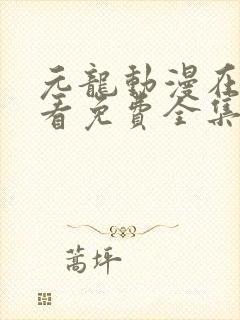 元龍動漫在
看免費全集
蒿坪